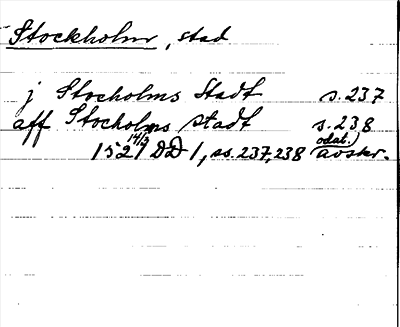 Stockholm, stad
j Stocholms Stadt s. 237
aff Stocholms stadt s. 238
1521 14/3 DD 1, ss. 237, 238 odat. avskr.